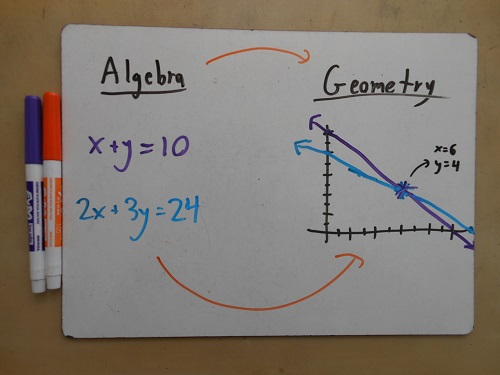 Algebra
Geometry
x+y=10
2x+3y=24
x=6
y=4